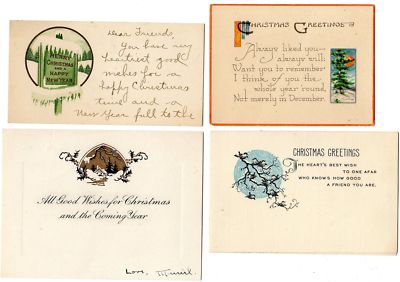 MERRY
CHRISTMAS
AND A
HAPPY
NEW YEAR
Dear Friends,
You have my
heartiest good
wishes for a
happy Christmas
time and a
New Year full to the
CHRISTMAS GREETINGS
Always liked you—
always will
Want you to remember
I think of you the
whole year round,
Not merely in December.
All Good Wishes for Christmas
and the Coming Year
Love, Muriel.
CHRISTMAS GREETINGS
THE HEART'S BEST WISH
TO ONE AFAR
WHO KNOWS HOW GOOD
A FRIEND YOU ARE.